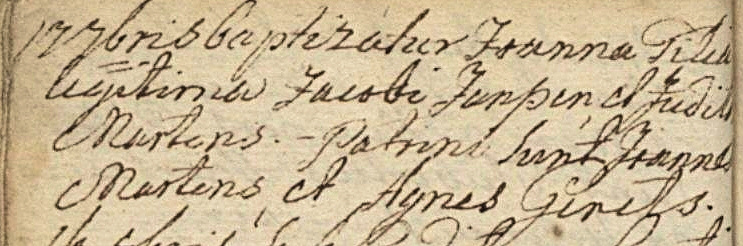 17 7bris baptizatur Joanna Filia
legitima Jacobi Janssen, et Judith
Martens. - Patrini sunt Joannes
Martens, et Agnes Gerets.